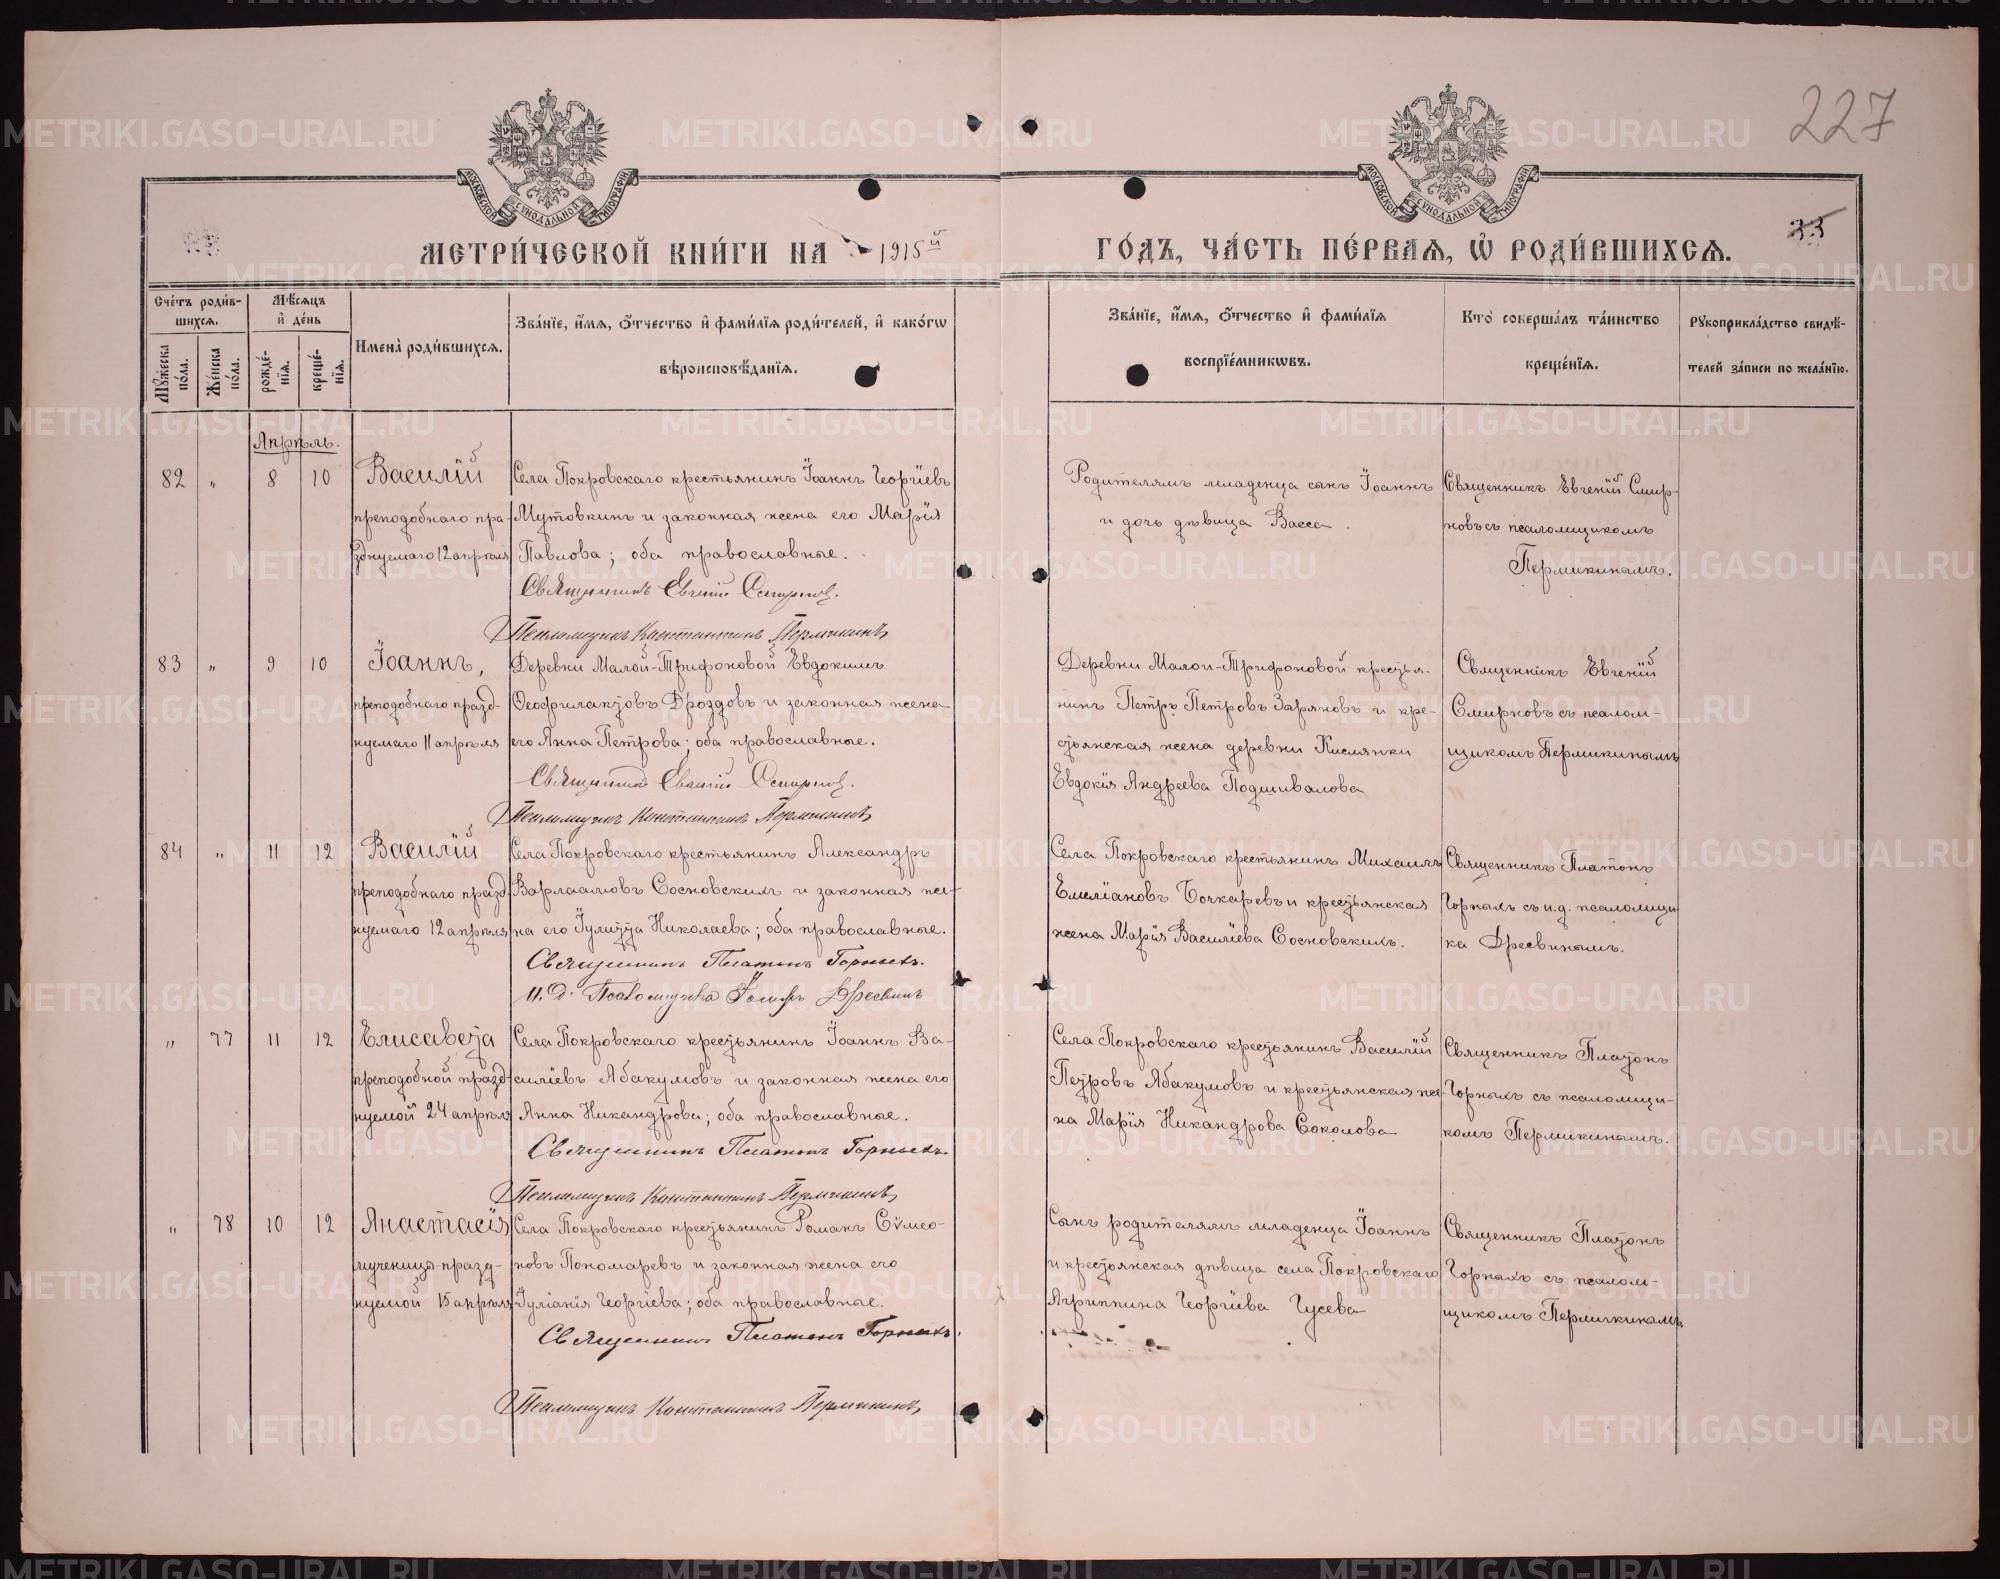 227
МОСКОВСКОЙ СѴНОДАЛЬНОЙ ТИПОГРАФІИ
МОСКОВСКОЙ СѴНОДАЛЬНОЙ ТИПОГРАФІИ
МЕТРИ́ЧЕСКОЙ КНИ́ГИ НА 1915й ГО́ДЪ, ЧА́СТЬ ПЕ́РВАѦ, Ѽ РОДИ́ВШИХСѦ.
33
Сче́тъ роди́в-
шихсѧ.
Мꙋ́жеска по́ла.
Же́нска по́ла.
Мѣ́сѧцъ
и҆ де́нь
рожде́-
нїѧ.
креще́-
нїѧ.
Имена̀ роди́вшихсѧ.
Зва́нїе, и҆́мѧ, ѻ҆́тчество и҆ фами́лїѧ роди́телей, и҆ како́гѡ
вѣроисповѣ́данїѧ.
Зва́нїе, и҆́мѧ, ѻ҆́тчество и҆ фами́лїѧ
воспрїе́мникѡвъ.
Кто̀ соверша́лъ та́инство
креще́нїѧ.
Рꙋкоприкла́дство свидѣ́-
телей за́писи по жела́нїю.
Апрѣль.
82 „ 8 10
Василій
преподобнаго пра-
зднуемаго 12 апрѣля
Села Покровскаго крестьянинъ Іоаннъ Георгіевъ
Мутовкинъ и законная жена его Марія
Павлова; оба православные.
Священникъ Евгеній Смирновъ.
Псаломщикъ Константинъ Пермикинъ
Родителямъ младенца сынъ Іоаннъ
и дочь дѣвица Васса.
Священникъ Евгеній Смир-
новъ съ псаломщикомъ
Пермикинымъ.
83 „ 9 10
Іоаннъ,
преподобнаго празд-
нуемаго 11 апрѣля
Деревни Малой-Трифоновой Евдокимъ
Ѳеофилактовъ Дроздовъ и законная жена
его Анна Петрова; оба православные.
Священникъ Евгеній Смирновъ.
Псаломщикъ Константинъ Пермикинъ
Деревни Малой-Трифоновой кресть-
нинъ Петръ Петровъ Заряновъ и кре-
стьянская жена деревни Кислянки
Евдокія Андреева Подшивалова
Священникъ Евгеній
Смирновъ съ псалом-
щикомъ Пермикинымъ
84 „ 11 12
Василій
преподобнаго празд-
нуемаго 12 апрѣля
Села Покровскаго крестьянинъ Александръ
Варлаамовъ Сосновскихъ и законная же-
на его Іулитта Николаева; оба православные.
Священникъ Платонъ Горныхъ.
И.д. Псаломщика Іосифъ Дресвинъ
Села Покровскаго крестьянинъ Михаилъ
Емеліановъ Бочкаревъ и крестьянская
жена Марія Василіева Сосновскихъ.
Священникъ Платонъ
Горныхъ съ и.д. псаломщи-
ка Дресвинымъ.
„ 77 11 12
Елисавета
преподобной празд-
нуемой 24 апрѣля
Села Покровскаго крестьянинъ Іоаннъ Ва-
силіевъ Абакумовъ и законная жена его
Анна Никандрова; оба православные.
Священникъ Платонъ Горныхъ.
Псаломщикъ Константинъ Пермикинъ
Села Покровскаго крестьянинъ Василій
Петровъ Абакумовъ и крестьянская же-
на Марія Никандрова Соколова
Священникъ Платонъ
Горныхъ съ псаломщи-
комъ Пермикинымъ.
„ 78 10 12
Анастасія
мученицы празд-
нуемой 15 апрѣля
Села Покровскаго крестьянинъ Романъ Сѵмео-
новъ Пономаревъ и законная жена его
Іуліанія Георгіева; оба православные.
Священникъ Платонъ Горныхъ.
Псаломщикъ Константинъ Пермикинъ
Сынъ родителямъ младенца Іоаннъ
и крестьянская дѣвица села Покровскаго
Агриппина Георгіева Гусева
Священникъ Платонъ
Горныхъ съ псалом-
щикомъ Пермикинымъ
METRIKI.GASO-URAL.RU